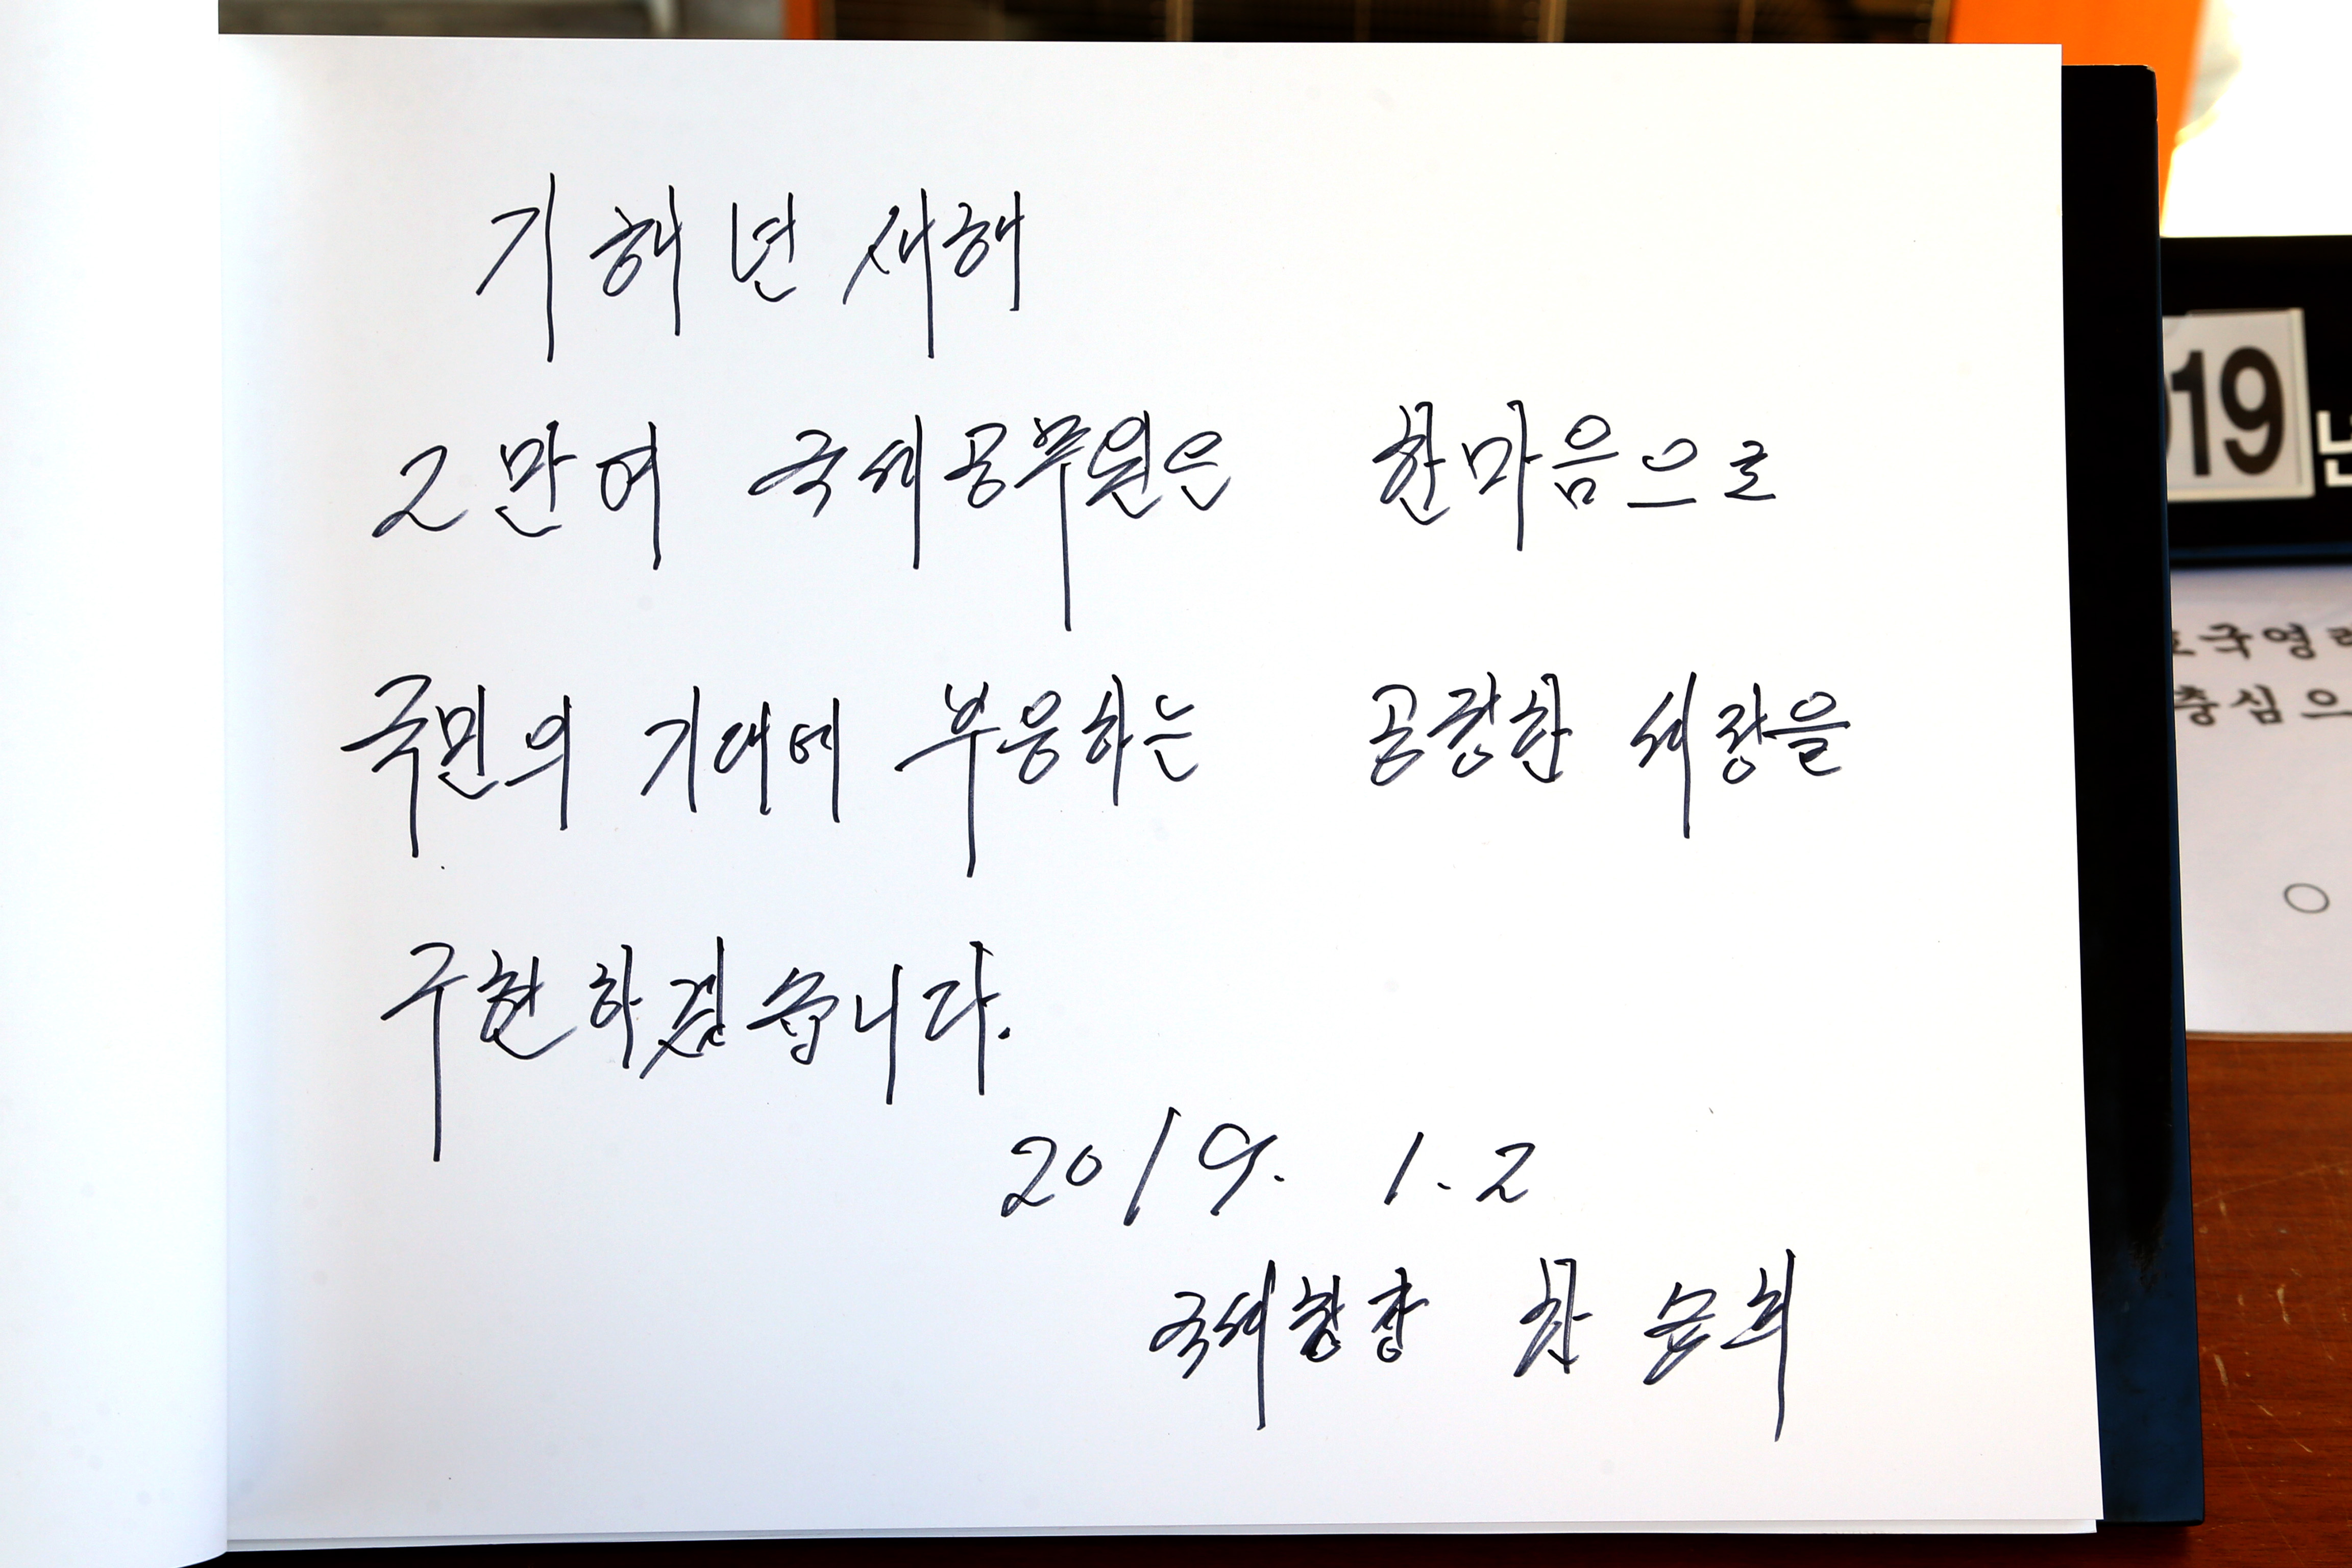 기해년 새해
2만여 국세공무원은 한마음으로
국민의 기대에 부응하는 공정한 세정을
구현하겠습니다.
2019. 1. 2
국세청장 한승희
19
국영
충심으